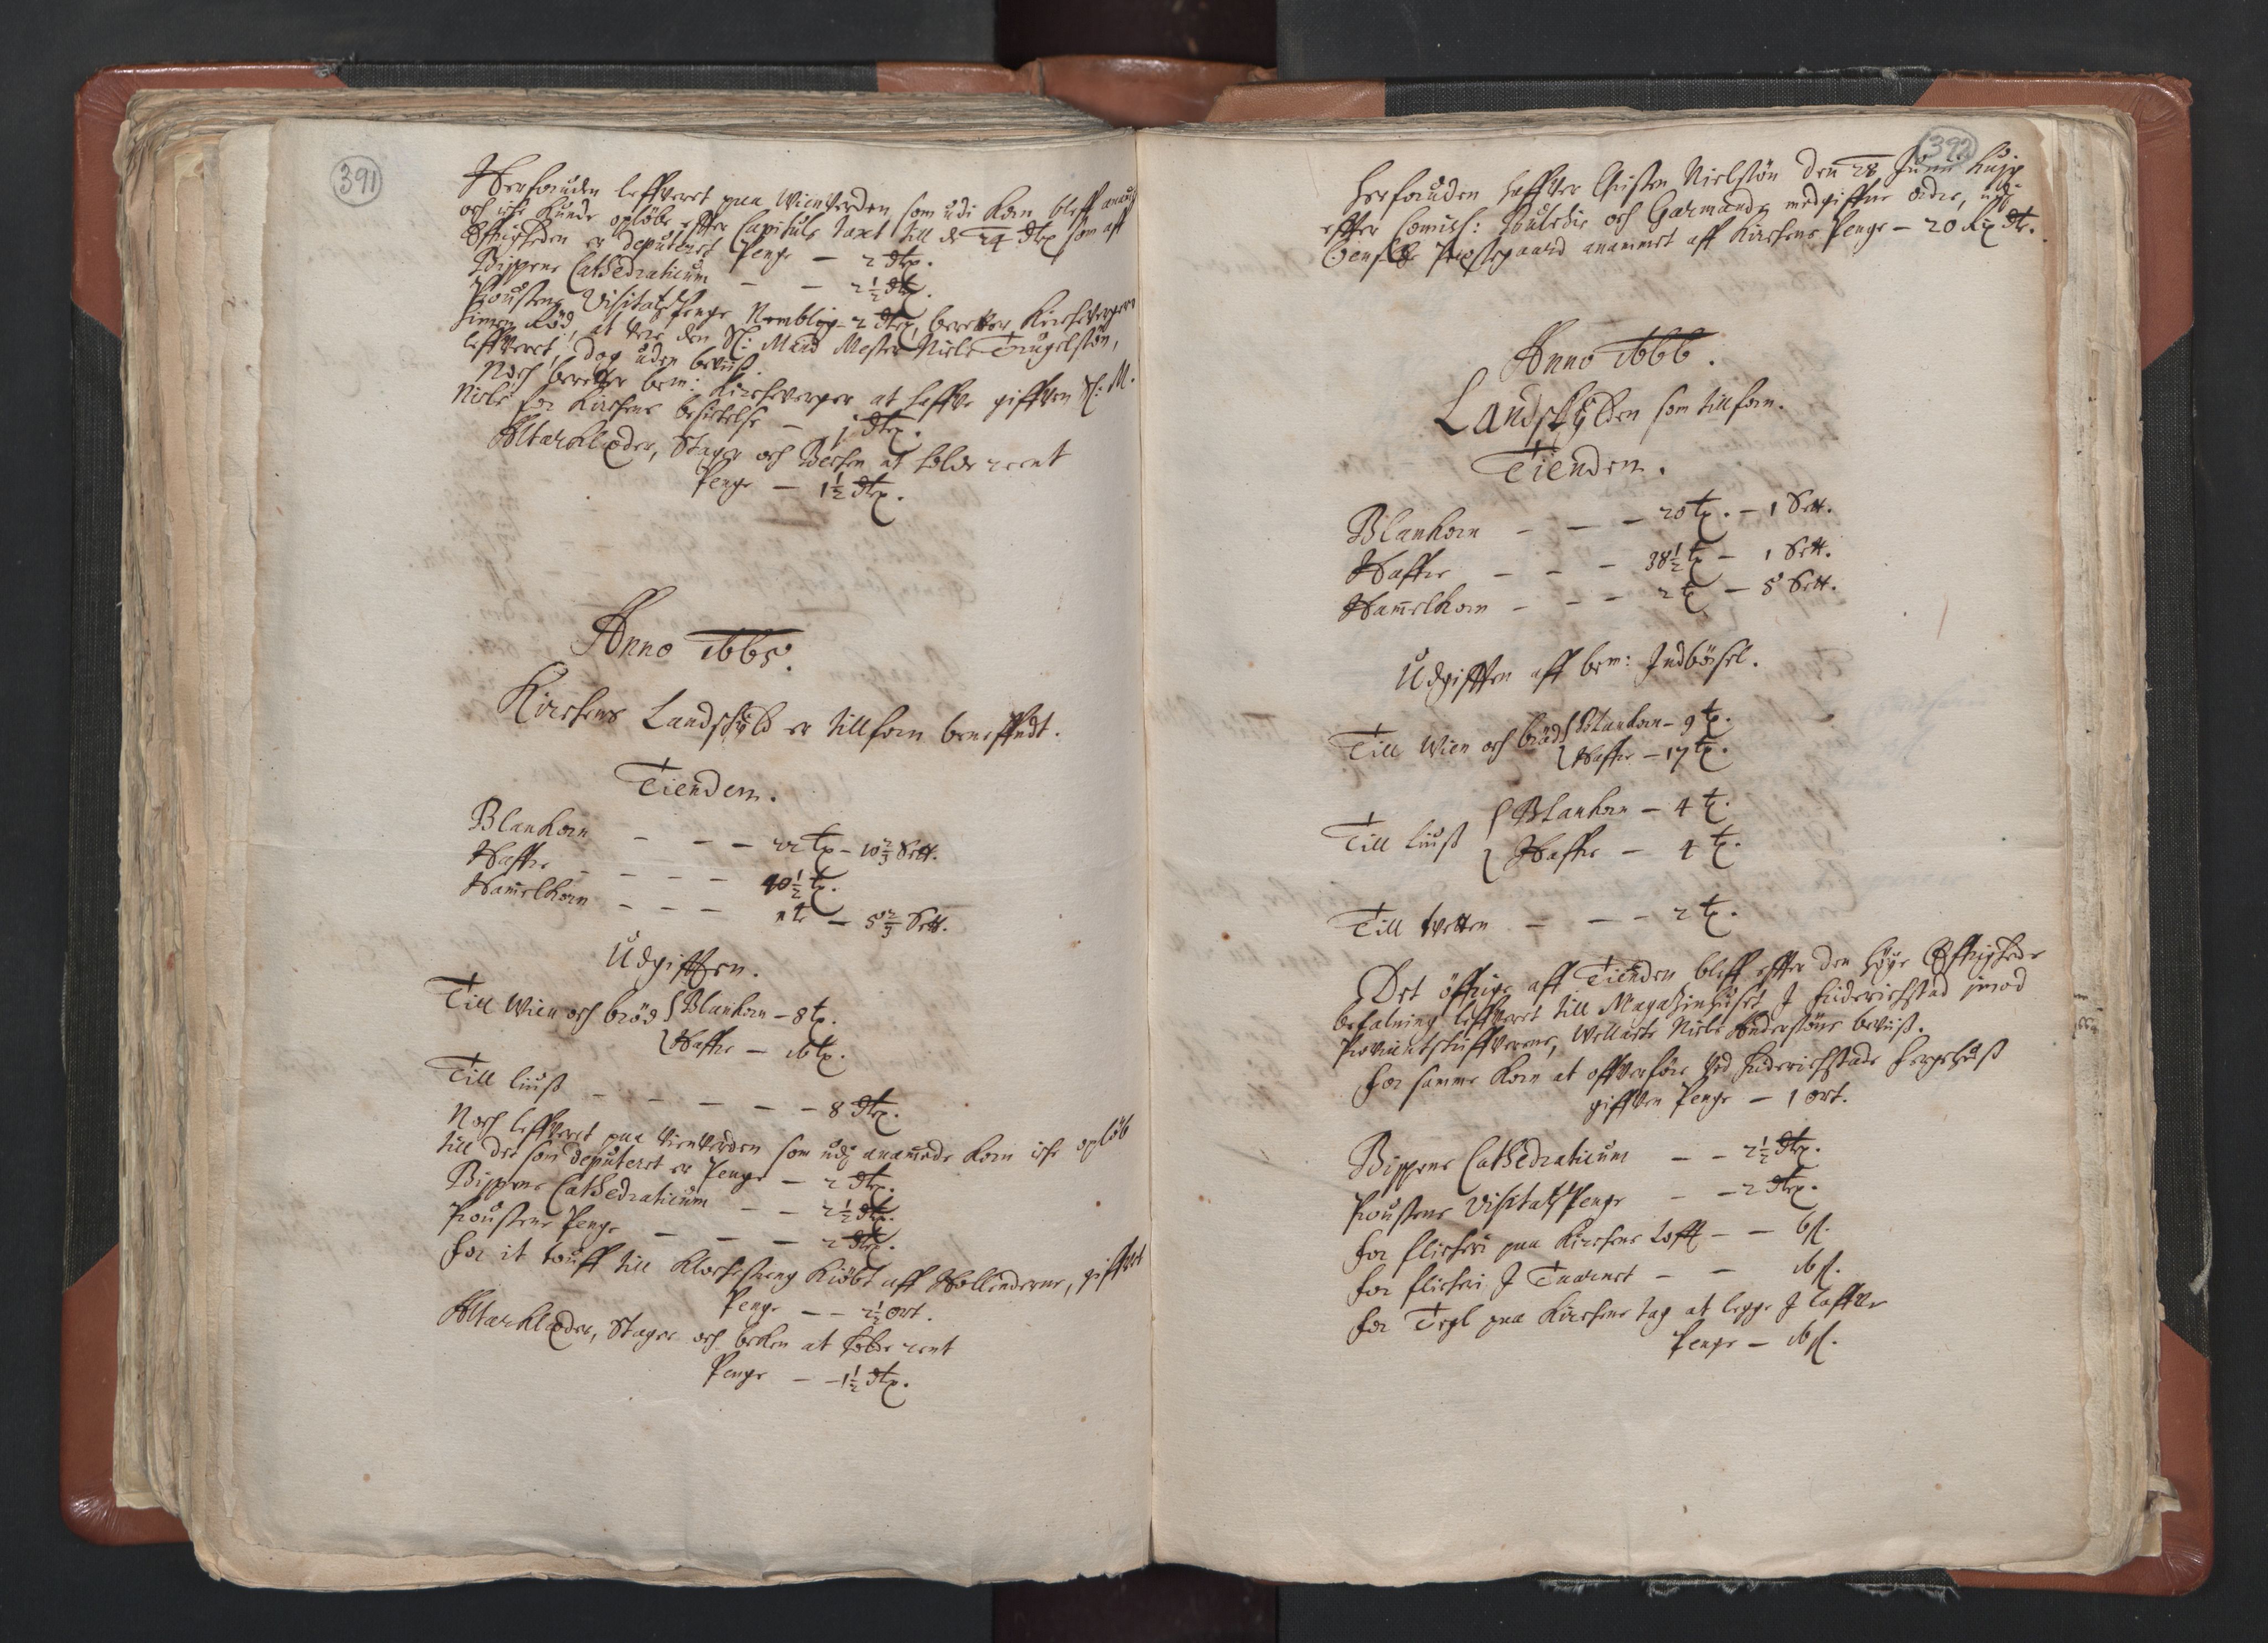 391
Herforuden leffveret paa Wienverden, som udi Korn bleff anam̄
och iche kunde opløbe, effter Capituls taxt till de 24 dlr som aff
Øffrigheden er deputeret Penge — 2 dlr.
Bispens Cathedraticum — — 2½ dlr.
Proustens Visitatz Penge Nemblig – 2 dlr, beretter Kircheverger
Simen Rød, at vere den Sl: Mand Mester Niels Trugelssøn,
leffveret, dog uden beviiß.
Noch beretter bem: Kircheverger at haffve giffven Sl: M.
Niels for Kirchens besichtelse — 1 dlr.
Altarklæder, Stager och Becken at holde reent
Penge — 1½ dlr.
Anno 1665.
Kirchens Landskyld er tillforn beneffndt.
Tienden.
Blankorn — — — 22 tr – 10⅔ Sett.
Haffre — — — — 40½ tr.
Ham̄elkorn — — — 2 tr — 5⅔ Sett.
Udgifften.
Till Wien och brød { Blankorn – 8 tr.
{ Haffre — 16 tr.
Till liuß — — — — — 8 dlr.
Noch leffveret paa Vienverden som udj anam̄ede Korn iche opløb
till det som deputeret er Penge — 2 dlr.
Bispens Cathedraticum — — 2½ dlr.
Proustens Penge — — — 2 dlr.
For it touff till Klochestreng kiøbt aff Hollenderne, giffvet
Penge — — 2½ ort.
Altarklæder, Stager och becken at holde reent
Penge — – 1½ dlr.
392
Herforuden haffver Christen Nielssøn den 28 Junii
effter Comiss: och Garmandz medgiffne ordre, udj
Præstegaard anammet aff Kirchens Penge – 20 Rix dr.
Anno 1666.
Landskylden som tillforn.
Tienden.
Blankorn — — – 20 tr. – 1 Sett.
Haffre — — – 38½ tr – 1 Sett.
Ham̄elkorn — — – 2 tr — 5 Sett.
Udgifften aff bem: Indbørsel.
Till Wien och brød { Blankorn – 9 tr.
{ Haffre – 17 tr.
Till liuß { Blankorn — 4 tr.
{ Haffre — 4 tr.
Till tvetten — — – 2 tr.
Det øffrige aff Tienden bleff effter den høye Øffrigheds
befalning leffveret till Magazinhuset J Friderichstad imod
Proviantskriffverens, Wellacte Niels Anderssøns beviiß.
For samme Korn at offverføre ved Friderichstads fergehuß
giffven Penge — 1 ort.
Bispens Cathedraticum — – 2½ dlr.
Proustens Visitatz Penge — – 2 dlr.
For flicheri paa Kirchens Lofft – — 6 ß.
For flicheri J Taarnet — — 16 ß.
For Tegl paa Kirchens tag at legge J laffve
Penge — 16 ß.